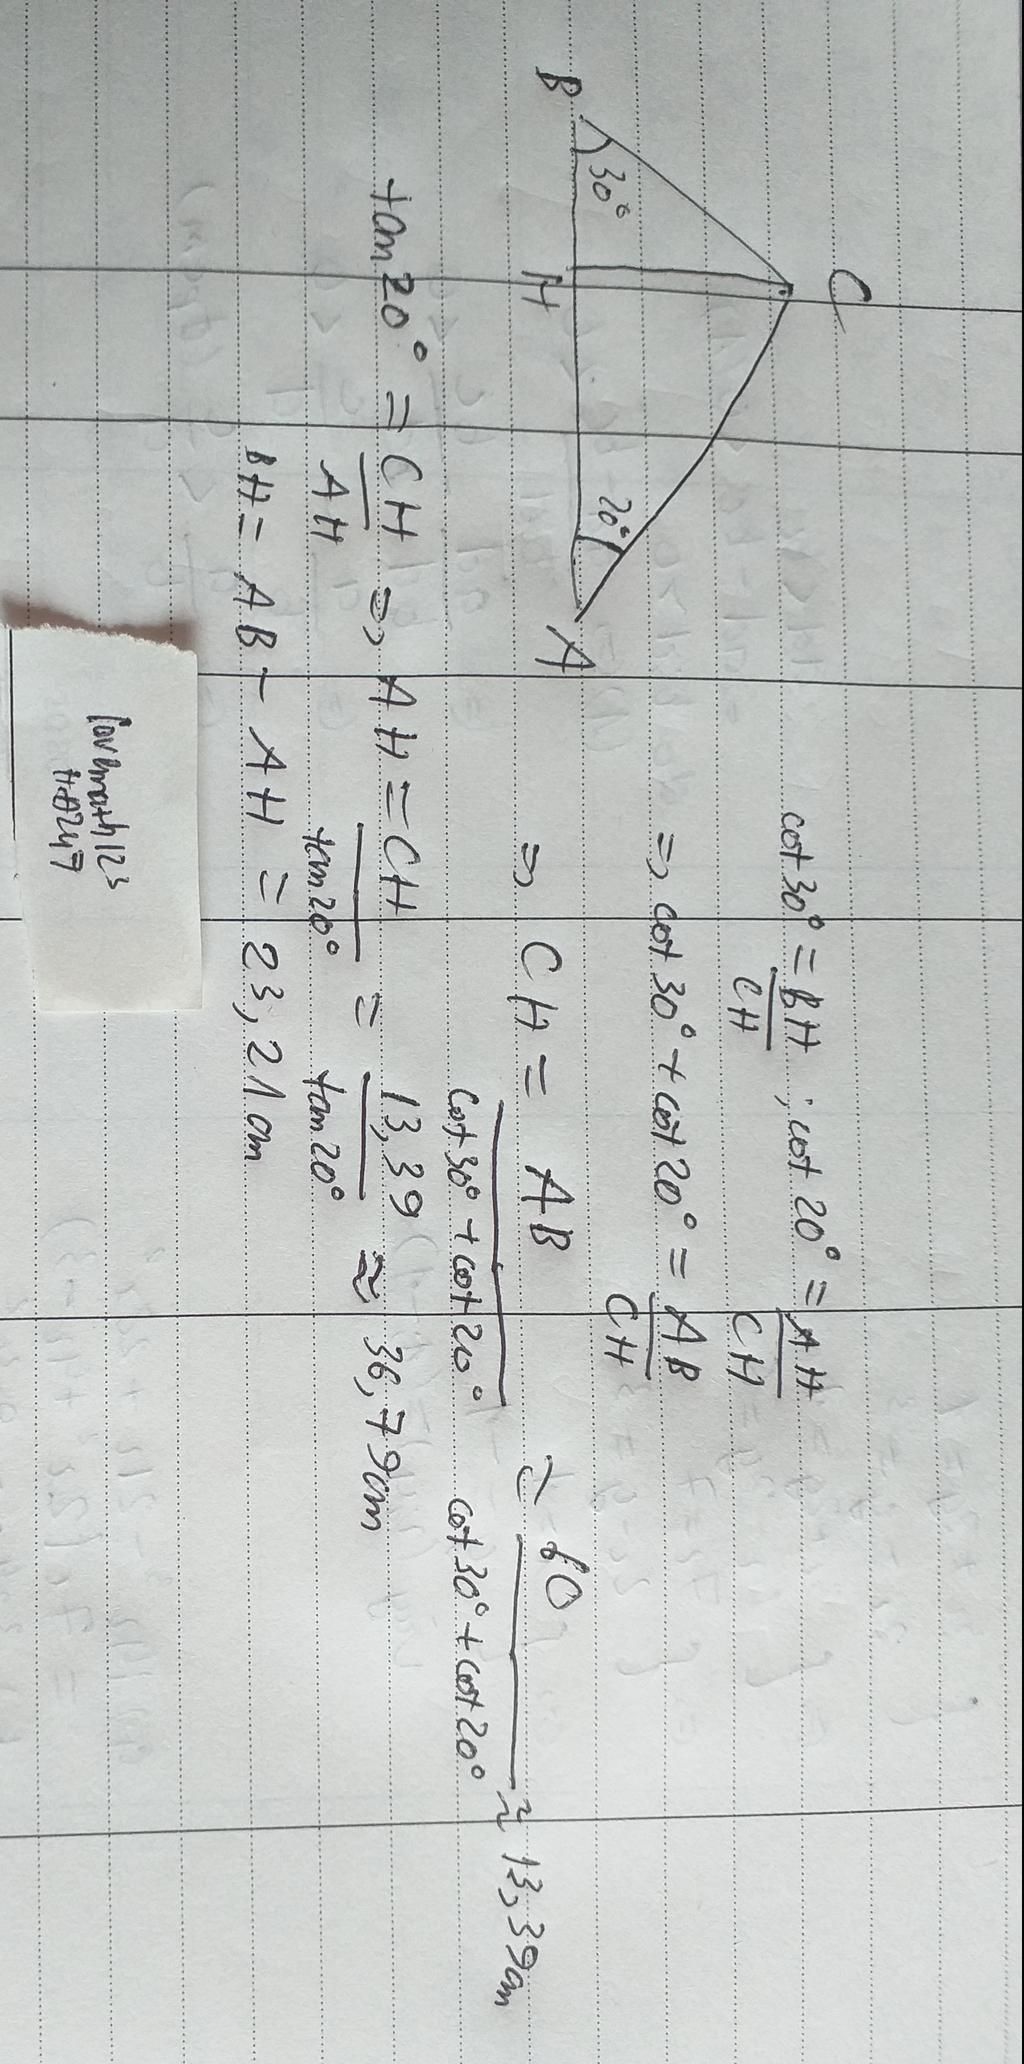 C
B 30° H 20° A
cot 30° = BH/CH ; cot 20° = AH/CH
=> cot 30° + cot 20° = AB/CH
=> CH = AB/(cot 30° + cot 20°) = 60/(cot 30° + cot 20°) ≈ 13,39cm
tan 20° = CH/AH => AH = CH/tan 20° = 13,39/tan 20° ≈ 36,79cm
BH = AB - AH = 23,21cm
lovemath123